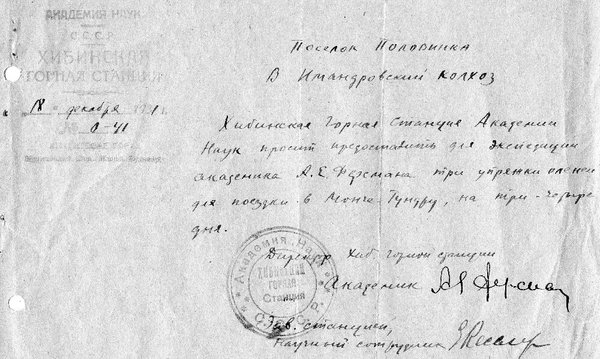 АКАДЕМИЯ НАУК
С.С.С.Р.
ХИБИНСКАЯ
ГОРНАЯ СТАНЦИЯ
18 декабря
№ 0-41
Поселок Половинка
В Имандровский колхоз
Хибинская Горная Станция Академии
Наук просит предоставить для экспедиции
академика А.Е. Ферсмана три упряжки оленей
для поездки в Монче Тундру, на три-четыре
дня.
Директор Хиб. Горной станции
Академик
Зав. станцией,
научный сотрудник
Академия Наук
ХИБИНСКАЯ
ГОРНАЯ
Станция
С.С.С.Р.